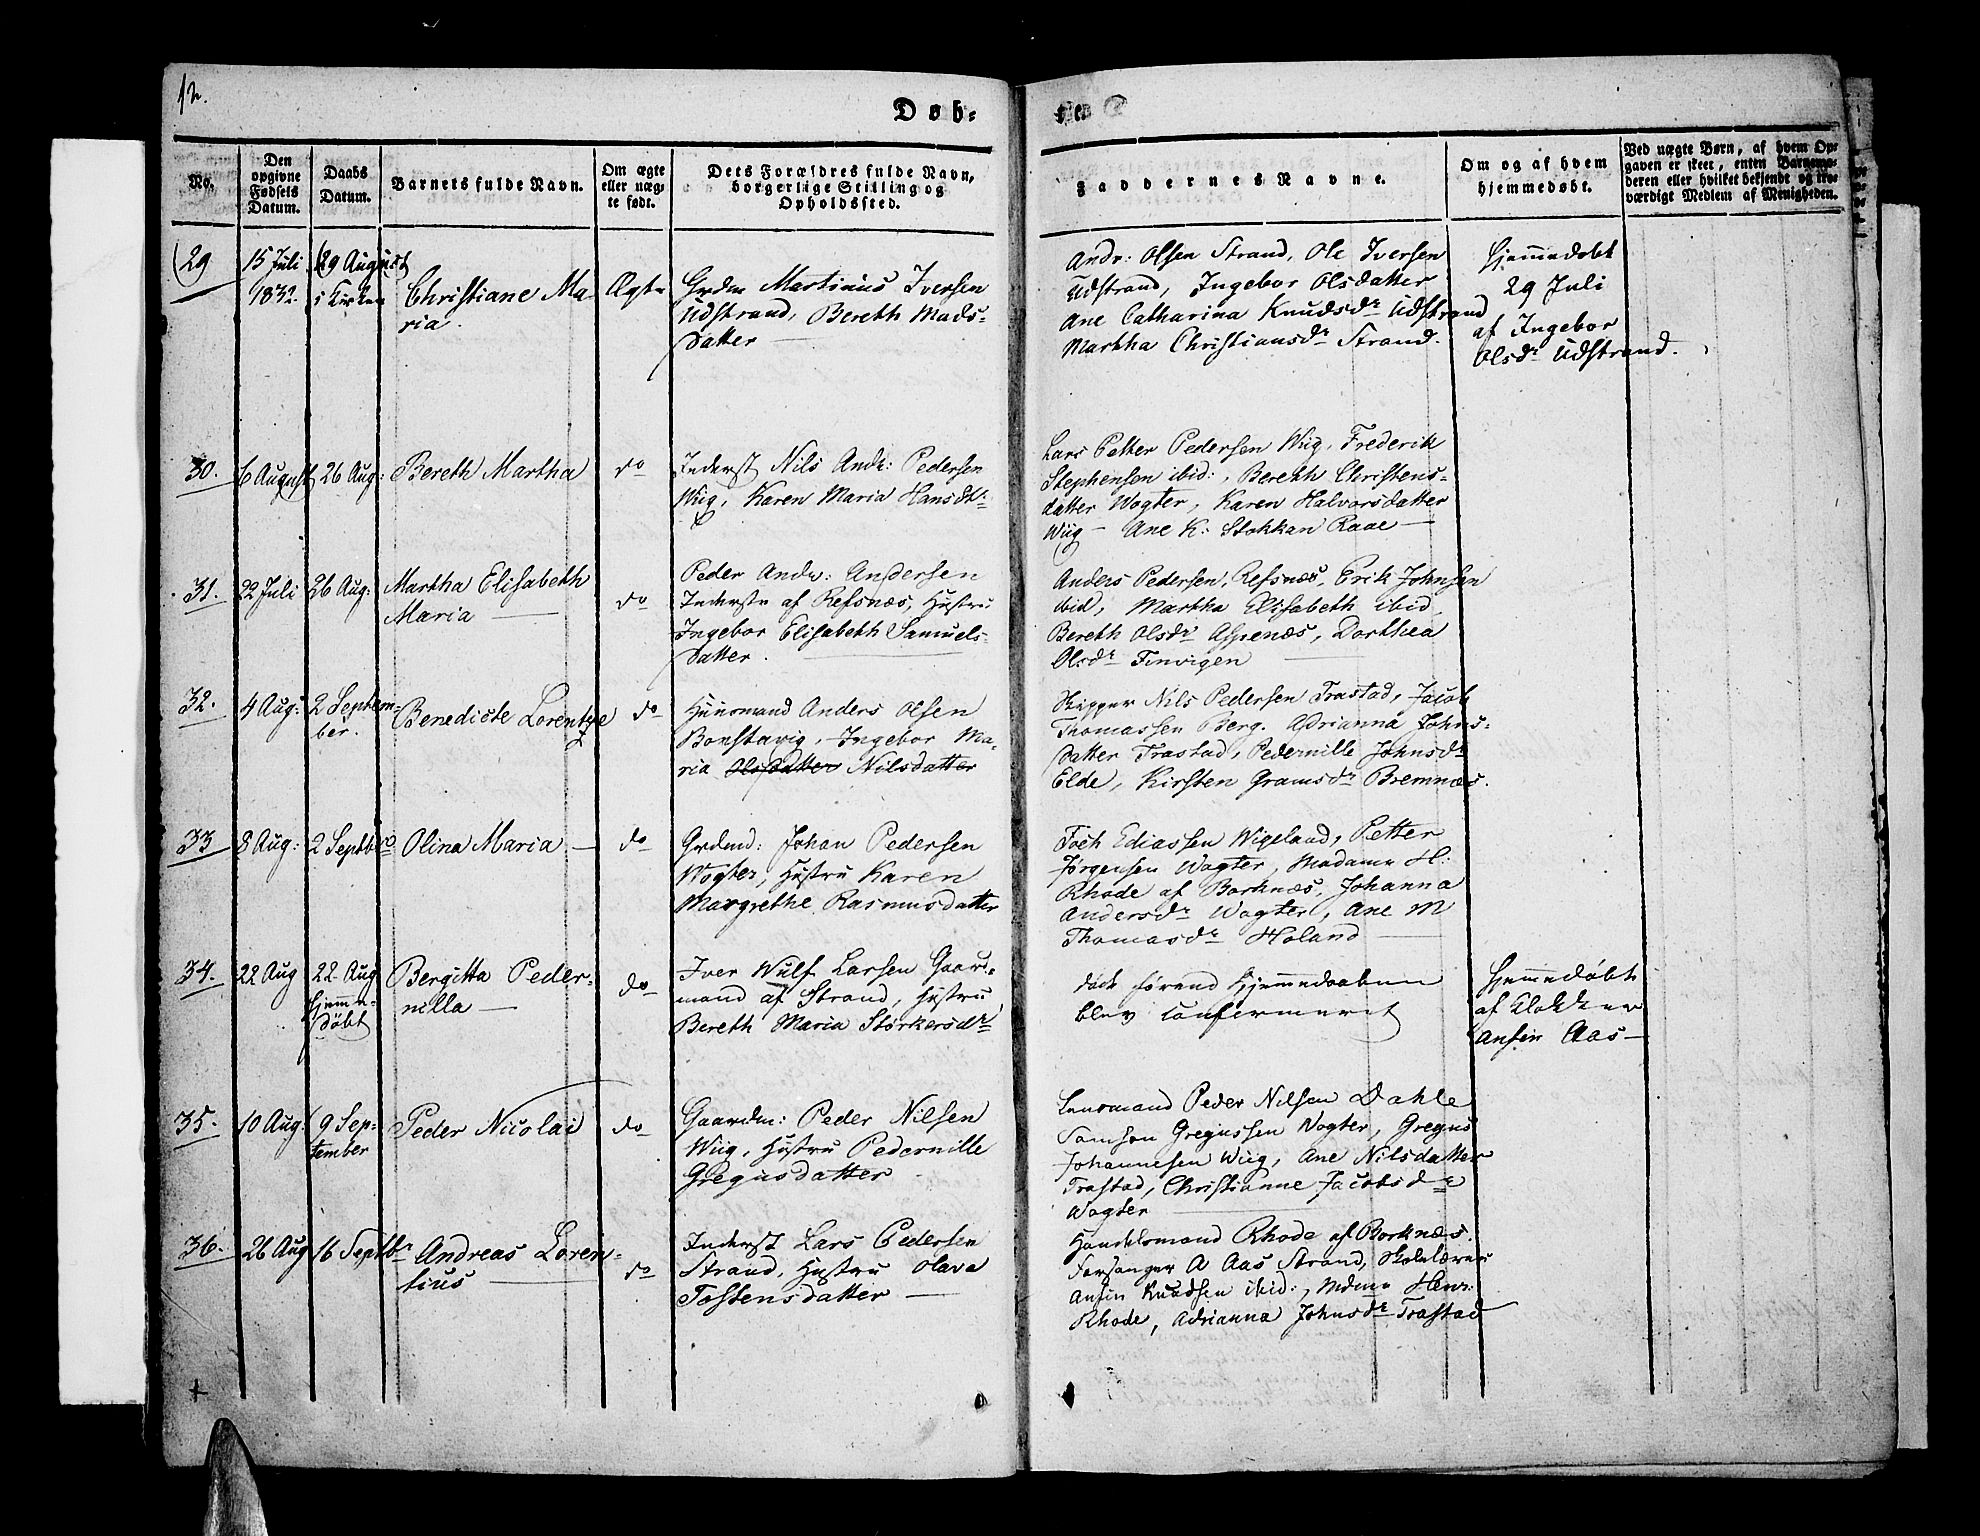 12.
Døb-
te.
No.
Den opgivne Fødsels Datum.
Daabs Datum.
Barnets fulde Navn.
Om ægte eller uægte født.
Dets Forældres fulde Navn, borgerlige Stilling og Opholdssted.
Faddernes Navne.
Om og af hvem hjemmedøbt.
Ved uægte Børn, af hvem Opgaven er skeet, enten Barnemoderen eller hvilket bekjendt og troværdigt Medlem af Menigheden.
29
15 Juli
1832.
29 August
i Kirken
Christiane Ma-
ria.
Ægte
Grdm Martinus Iversen
Udstrand, Bereth Mads-
datter
Andr: Olsen Strand, Ole Iversen
Udstrand, Ingebor Olsdatter
Ane Catharina Knudsdr Udstrand
Martha Christiansdr Strand.
Hjemmedøbt
29 Juli
af Ingebor
Olsdr Udstrand.
30.
6 August
26 Aug:
Bereth Martha
do
Inderst Nils Andr: Pedersen
Wiig, Karen Maria Hansdtr
Lars Petter Pedersen Wiig, Frederik
Stephensen ibid:, Bereth Christens-
datter Wogter, Karen Halvorsdatter
Wiig - Ane K: Stokkan Raae
31.
22 Juli
26 Aug:
Martha Elisabeth
Maria
do
Peder Andr: Andersen
Inderste af Refsnæs, Hustru
Ingebor Elisabeth Samuels-
datter.
Anders Pedersen, Refsnæs, Erik Johnsen
ibid, Martha Elisabeth ibid,
Bereth Olsdr Aspenæs, Dorthea
Olsdr Finvigen
32.
4 Aug:
2 Septem-
ber.
Benedicte Lorentze
do
Huusmand Anders Olsen
Bonstavig, Ingebor Ma-
ria Olsdatter Nilsdatter
Skipper Nils Pedersen Trastad, Jacob
Thomassen Berg. Adrianna Johns-
datter Trastad, Pedernille Johnsdr
Elde, Kirsten Gramsdr Bremnæs.
33
8 Aug:
2 Septbr
Olina Maria
do
Grdmd: Johan Pedersen
Wogter, Hustru Karen
Margrethe Rasmusdatter
Foch Ediassen Wigeland, Petter
Jørgensen Wogter, Madame H:
Rhode af Borknæs, Johanna
Andersdr Wogter, Ane M
Thomasdr Holand
34.
22 Aug
22 Aug
hjemme-
døbt
Bergitta Peder-
nilla
do
Iver Wulf Larsen Gaard-
mand af Strand, Hustru
Bereth Maria Størkersdr
døde førend Hjemmedaaben
blev confermeret
Hjemmedøbt
af Klokker
Ansin Aas
35.
10 Aug:
9 Sep-
tember
Peder Nicolai
do
Gaardm: Peder Nilsen
Wiig, Hustru Pedernille
Gregusdatter
Lensmand Peder Nilsen Dahle
Samson Gregussen Wogter, Gregus
Johannesen Wiig, Ane Nilsdatter
Trastad, Christianne Jacobsdr
Wogter
36.
26 Aug
16 Septbr
Andreas Loren-
tius
do
Inderst Lars Pedersen
Strand, Hustru Olava
Tostensdatter
Handelsmand Rhode af Borknæs.
Forsanger A Aas Strand, Skolelærer
Ansin Knudsen ibid:, Mdme Henr:
Rhode, Adrianna Johnsdr Trastad